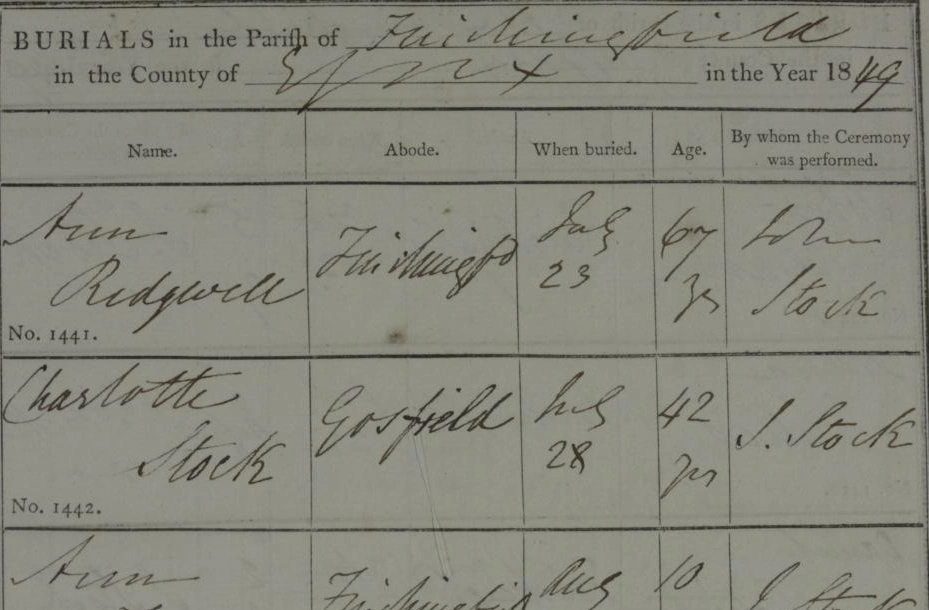 BURIALS in the Parish of Finchingfield
in the County of Essex in the Year 1849
Name. Abode. When buried. Age. By whom the Ceremony was performed.
Ann
Ridgwell
Finchingfd
July
23
67
yrs
John
Stock
No. 1441.
Charlotte
Stock
Gosfield
July
28
42
yrs
J. Stock
No. 1442.
Ann
Aug
10
J. Stock